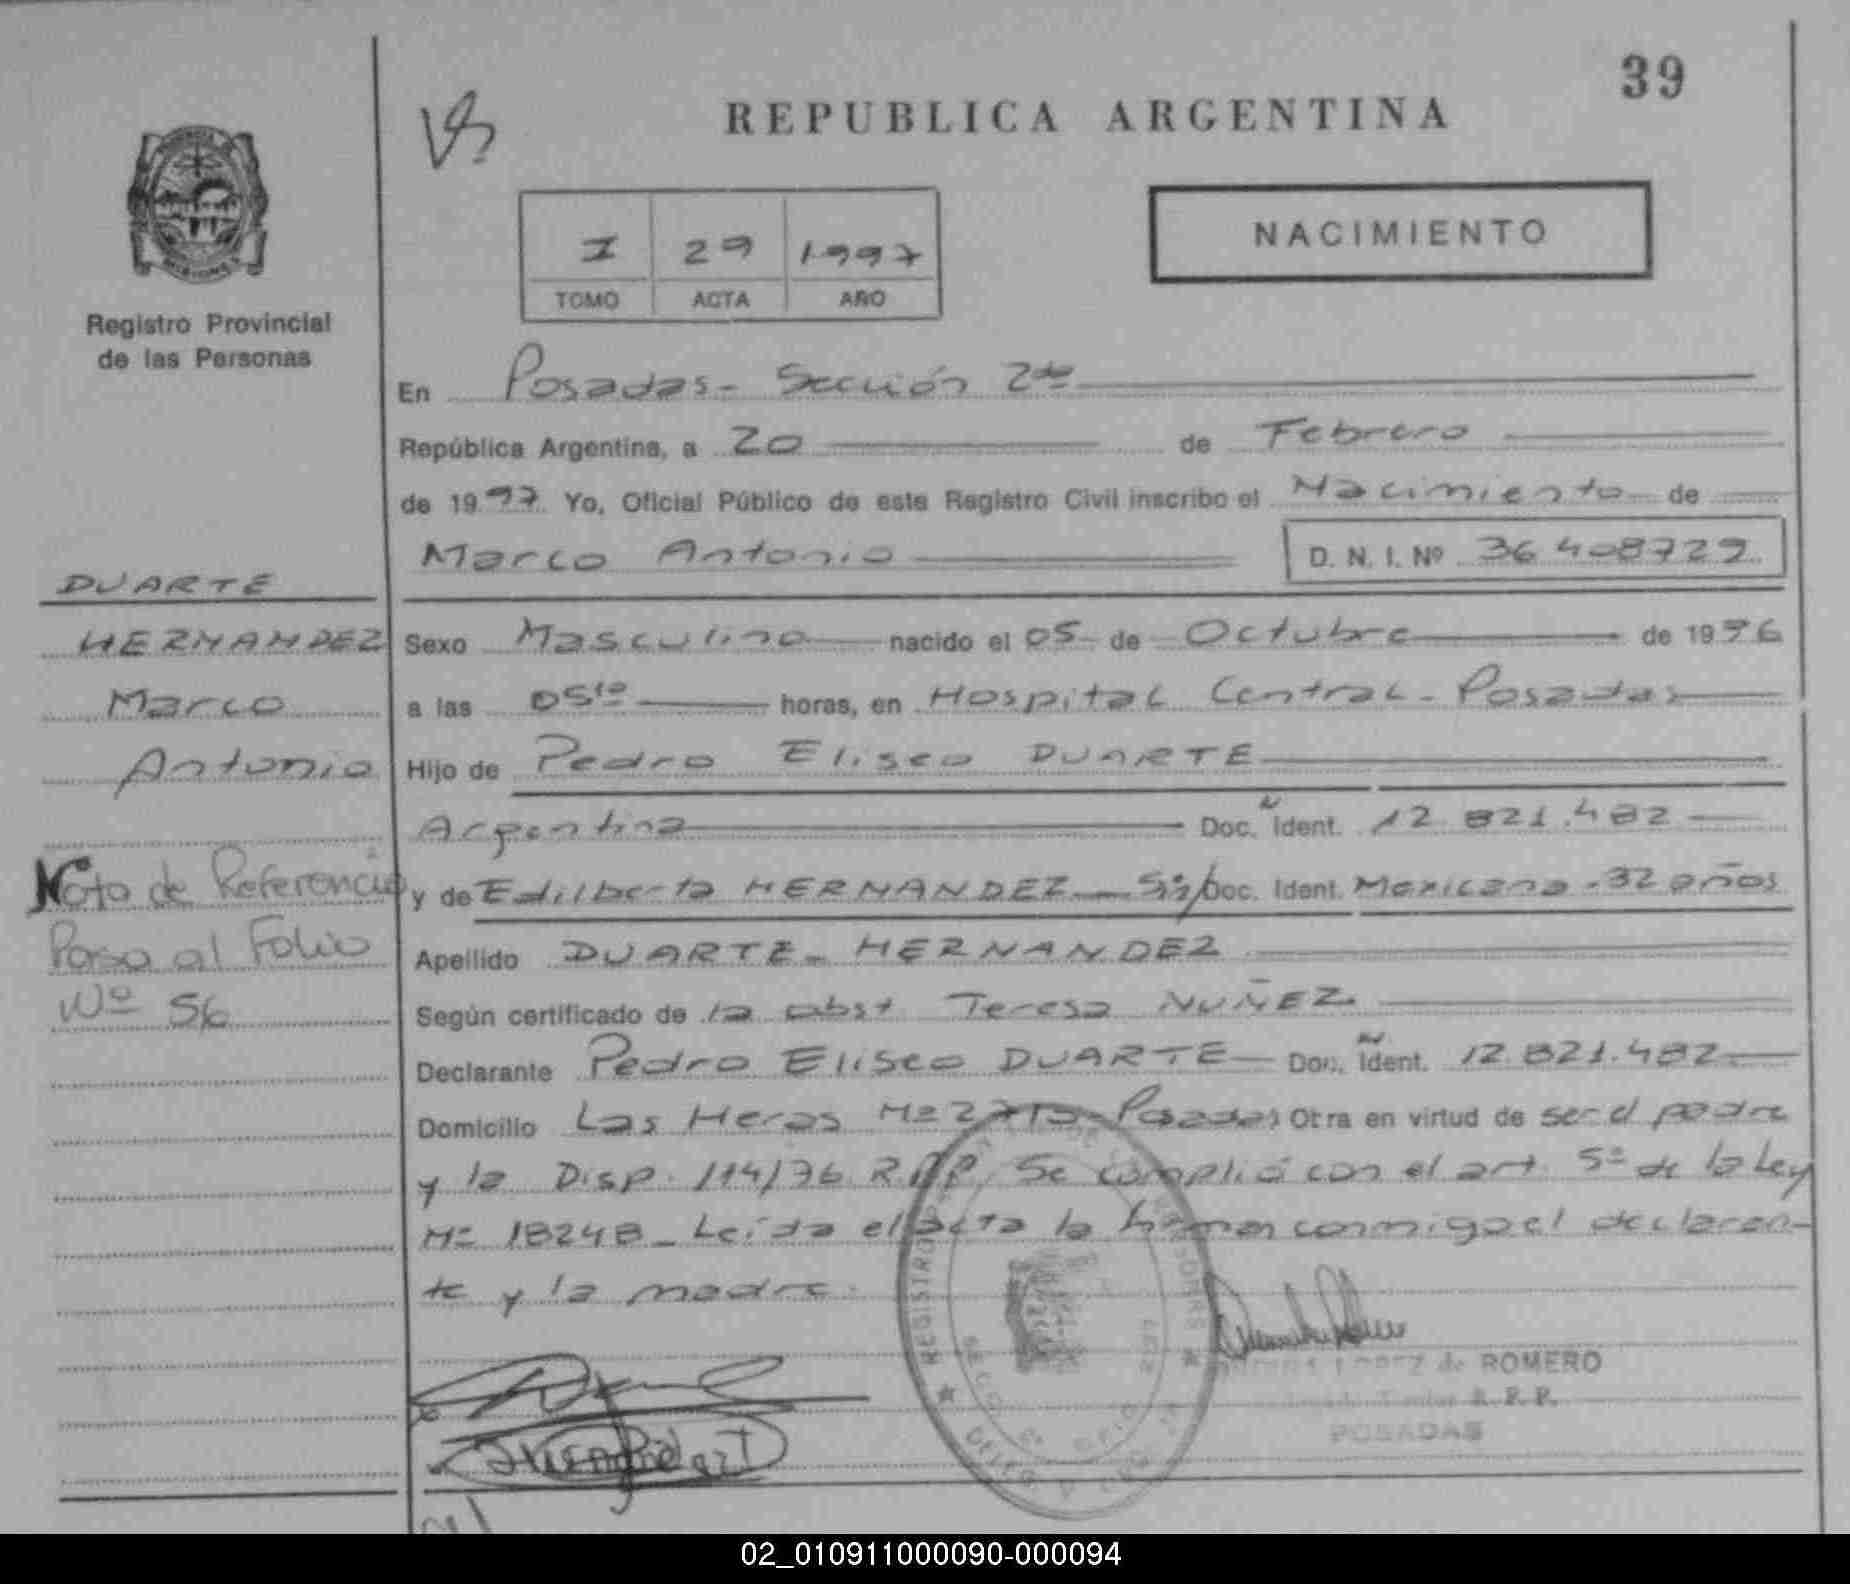 39
REPUBLICA ARGENTINA
I 29 1997
TOMO ACTA AÑO
NACIMIENTO
Registro Provincial
de las Personas
En Posadas - Sección 2da
República Argentina, a 20 de Febrero
de 1997 Yo, Oficial Público de este Registro Civil inscribo el Nacimiento de
Marco Antonio D. N. I. Nº 36408729
DUARTE
HERNANDEZ
Marco
Antonio
Sexo Masculino nacido el 05 de Octubre de 1996
a las 0510 horas, en Hospital Central - Posadas
Hijo de Pedro Eliseo DUARTE
Argentina Doc. Ident. 12.821.482
y de Edilberta HERNANDEZ Sin/Doc. Ident. Mexicana - 32 años
Nota de Referencia
Pasa al Folio
Nº 56
Apellido DUARTE - HERNANDEZ
Según certificado de la obst Teresa NUÑEZ
Declarante Pedro Eliseo DUARTE Doc. Ident. 12.821.482
Domicilio Las Heras Nº Posadas Otra en virtud de ser el padre
y la Disp. 114/96 R.P.P. Se complió con el art. 5º de la Ley
Nº 18248 - Leída el acta la firman conmigo el declaran-
te y la madre.
LOPEZ de ROMERO
R. P. P.
POSADAS
REGISTRO DE LAS PERSONAS
02_010911000090-000094